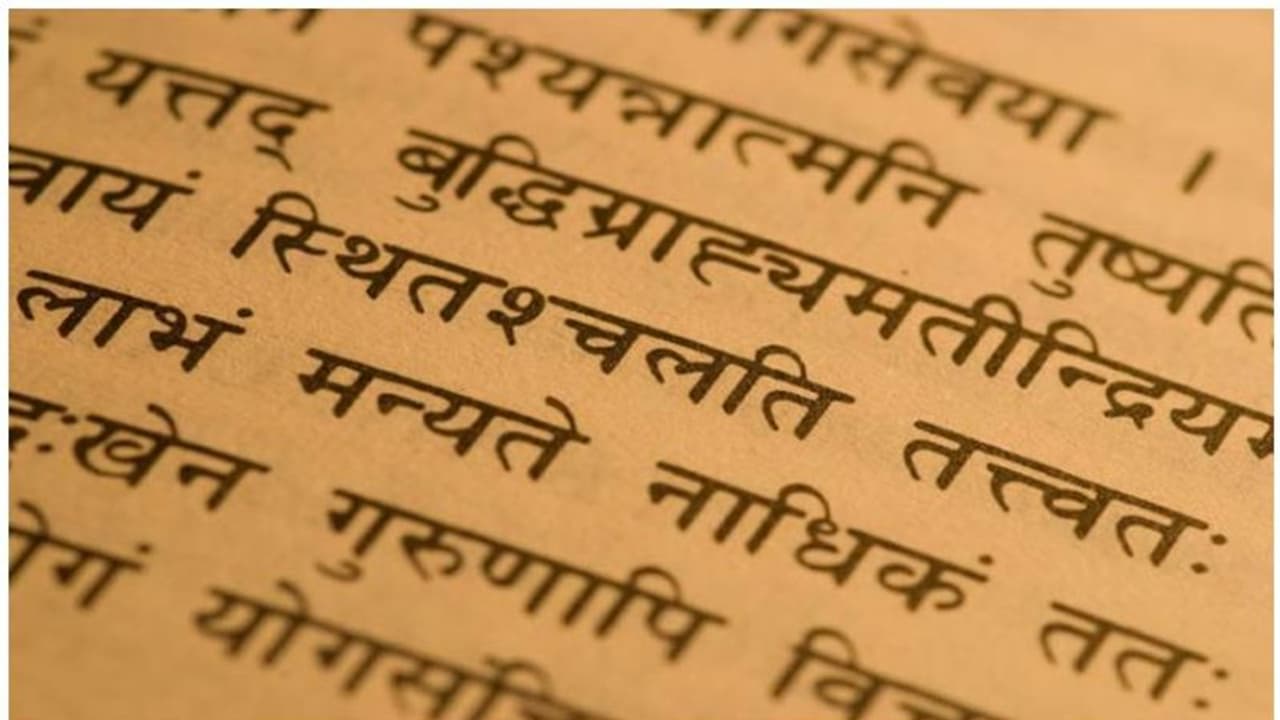 योगसेवया ।
पश्यन्नात्मनि तुष्यति
यत्तद् बुद्धिग्राह्यमतीन्द्रियम
वायं स्थितश्चलति तत्त्वतः
लाभं मन्यते नाधिकं ततः
दुःखेन गुरुणापि
योगं